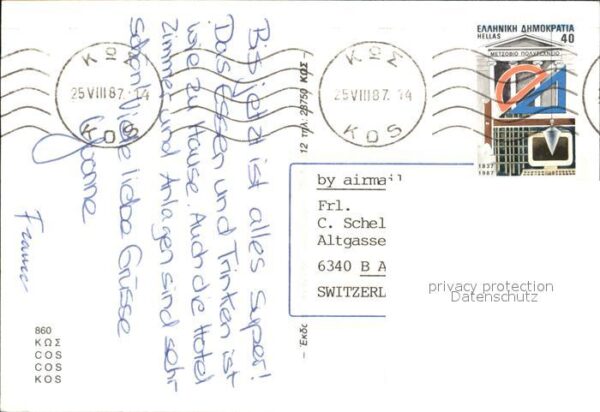 Bis jetzt ist alles super!
Das Essen und Trinken ist
wie zu Hause. Auch die Hotel
Zimmer und Anlagen sind sehr
schön. Viele liebe Grüsse
Yvonne
860
ΚΩΣ
COS
COS
KOS
ΚΩΣ
25 VIII 87. 14
KOS
ΚΩΣ
25 VIII 87. 14
KOS
12 τηλ. 28750 ΚΩΣ –
– Έκδο
ΕΛΛΗΝΙΚΗ ΔΗΜΟΚΡΑΤΙΑ
HELLAS 40
ΜΕΤΣΟΒΙΟ ΠΟΛΥΤΕΧΝΕΙΟ
1837
1987
by airmail
Frl.
C. Schel
Altgasse
6340 B A
SWITZERL
privacy protection
Datenschutz